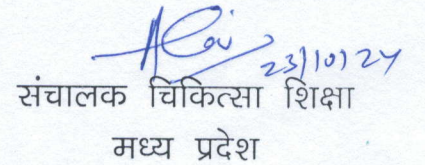 23/10/24
संचालक चिकित्सा शिक्षा
मध्य प्रदेश